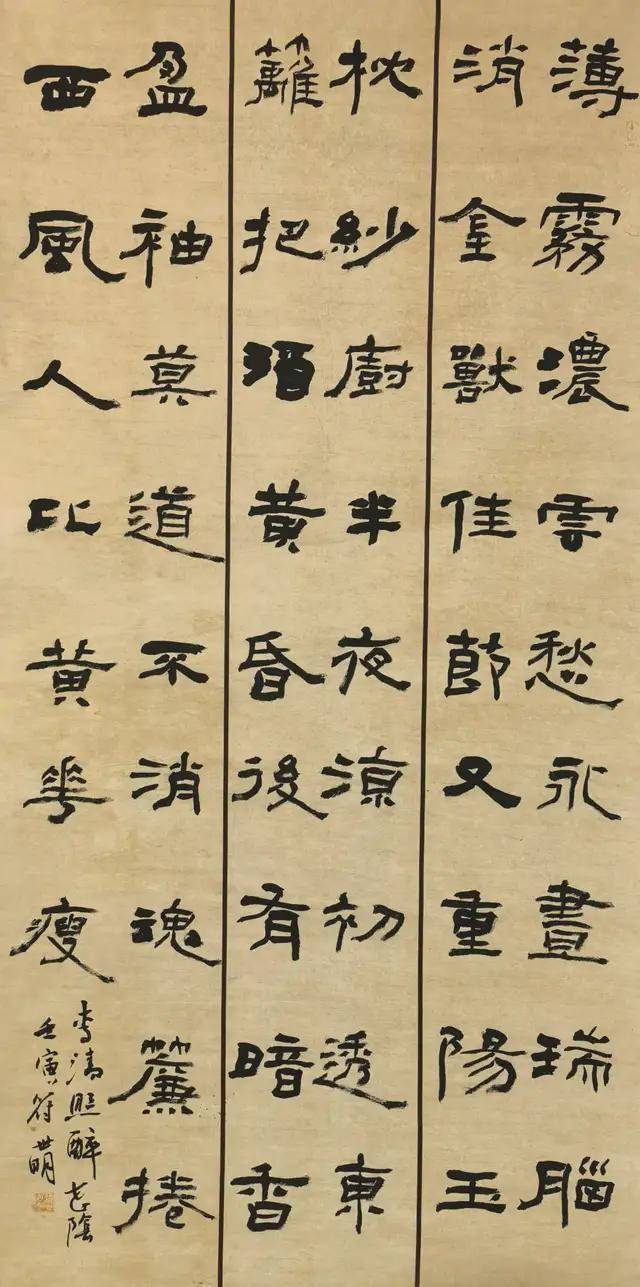 薄霧濃雲愁永晝瑞腦
消金獸佳節又重陽玉
枕紗廚半夜涼初透東
籬把酒黃昏後有暗香
盈袖莫道不消魂簾捲
西風人比黃華瘦
李清照醉花陰
壬寅符世明